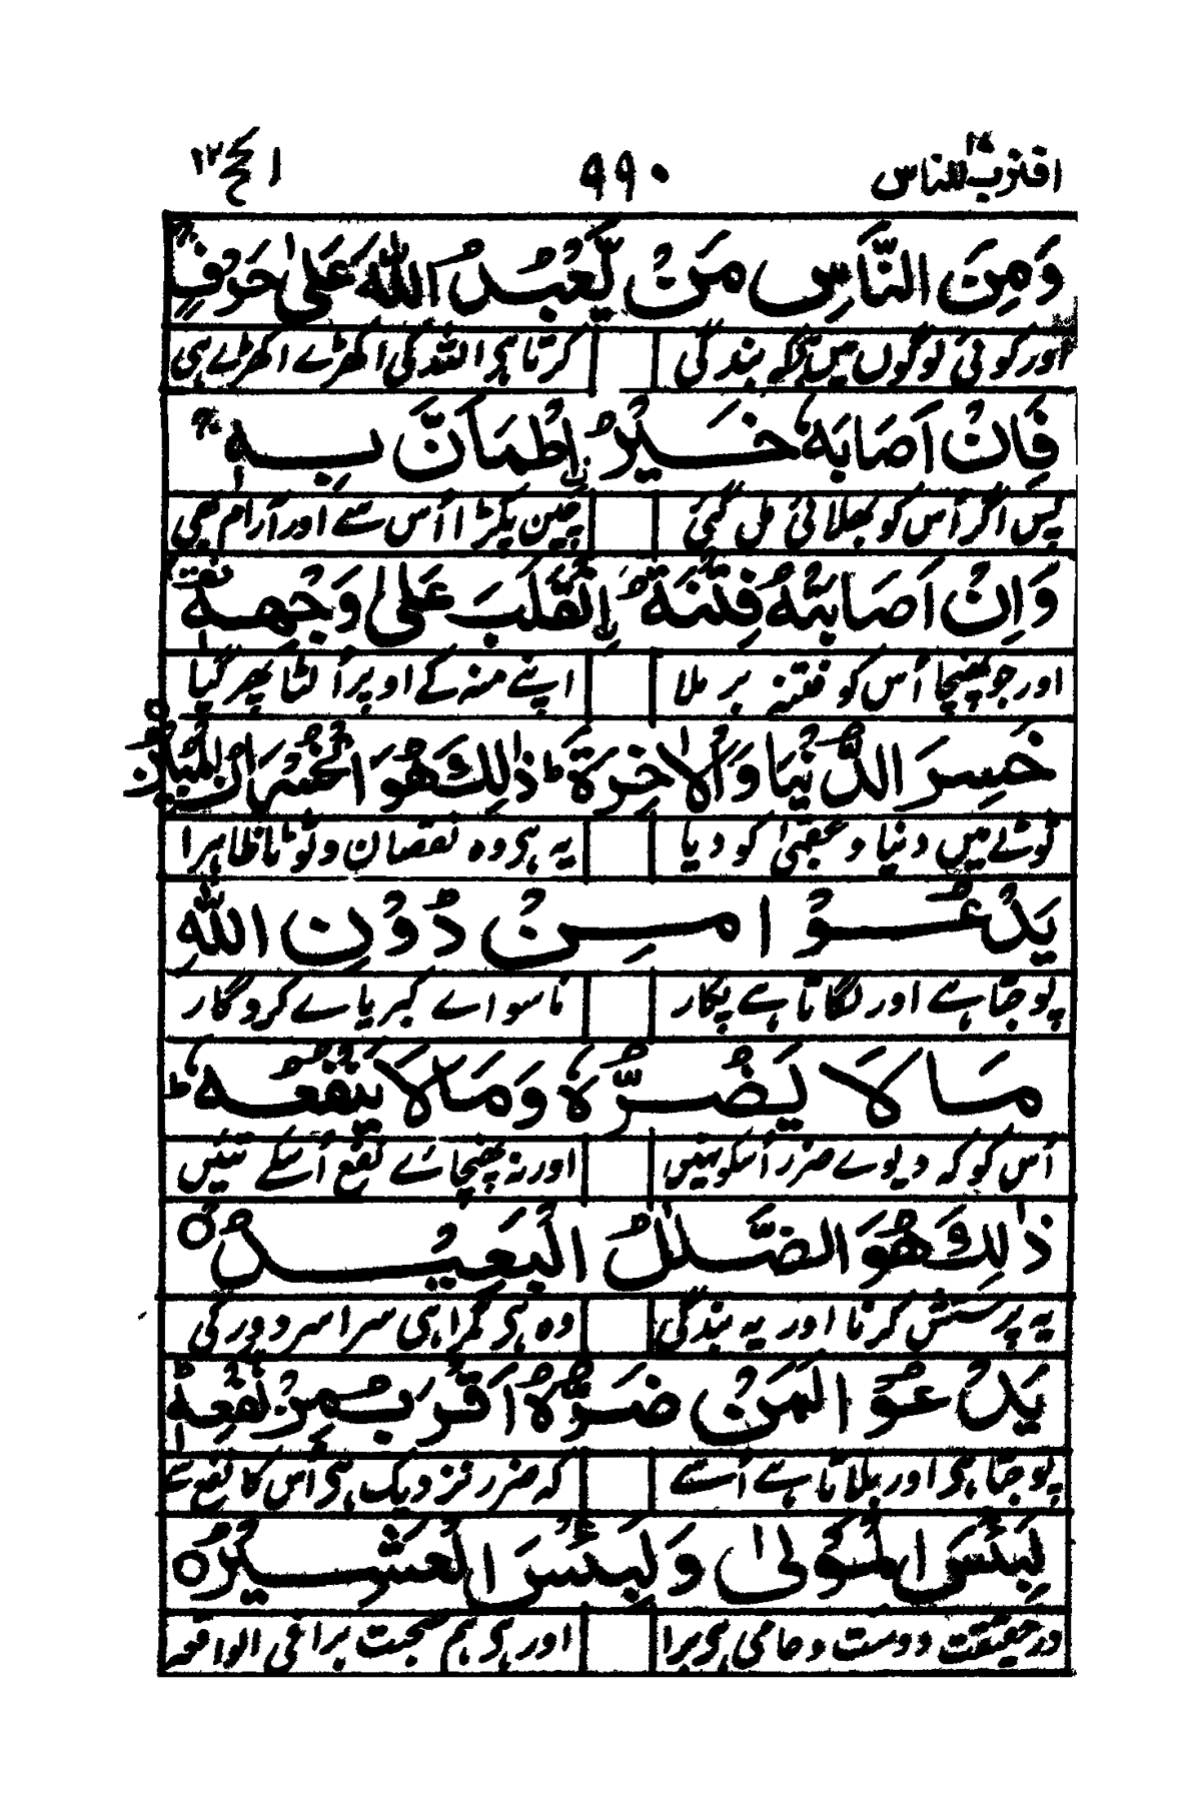 اقترب للناس ۱۷ ۹۹۰ الحج ۲۲
وَمِنَ النَّاسِ مَنْ يَّعْبُدُ اللّٰهَ عَلٰى حَرْفٍ ۚ
اور کوئی لوگوں میں ہے کہ بندگی کرتا ہی اللہ کی اکھڑے اکھڑے ہی
فَاِنْ اَصَابَهٗ خَيْرُ ۨاطْمَاَنَّ بِهٖ ۚ
پس اگر اُس کو بھلائی مل گئی چین پکڑا اُس سے اور آرام بھی
وَاِنْ اَصَابَتْهُ فِتْنَةُ ۨانْقَلَبَ عَلٰى وَجْهِهٖ
اور جو پہنچا اُس کو فتنہ بر ملا اپنے منہ کے اوپر اُلٹا پھر گیا
خَسِرَ الدُّنْيَا وَالْاٰخِرَةَ ؕ ذٰلِكَ هُوَ الْخُسْرَانُ الْمُبِيْنُ ○
ٹوٹے میں دنیا و عقبیٰ کو دیا یہ ہی وہ نقصان و ٹوٹا ظاہرا
يَدْعُوْا مِنْ دُوْنِ اللّٰهِ
پوجتا ہے اور لگاتا ہے پکار ماسواے کبریاے کردگار
مَا لَا يَضُرُّهٗ وَمَا لَا يَنْفَعُهٗ ؕ
اُس کو کہ دیوے ضرر اُسکو نہیں اور نہ پہنچاے نفع اُسکے تئیں
ذٰلِكَ هُوَ الضَّلٰلُ الْبَعِيْدُ ○
یہ پرستش کرنا اور یہ بندگی وہ ہی گمراہی سراسر دور کی
يَدْعُوْا لَمَنْ ضَرُّهٗۤ اَقْرَبُ مِنْ نَّفْعِهٖ ؕ
پوجتا ہی اور بلاتا ہے اُسے کہ ضرر نزدیک ہی اُس کا نفع سے
لَبِئْسَ الْمَوْلٰى وَلَبِئْسَ الْعَشِيْرُ ○
درحقیقت دوست و حامی ہی برا اور ہی ہم صحبت برا فی الواقعہ